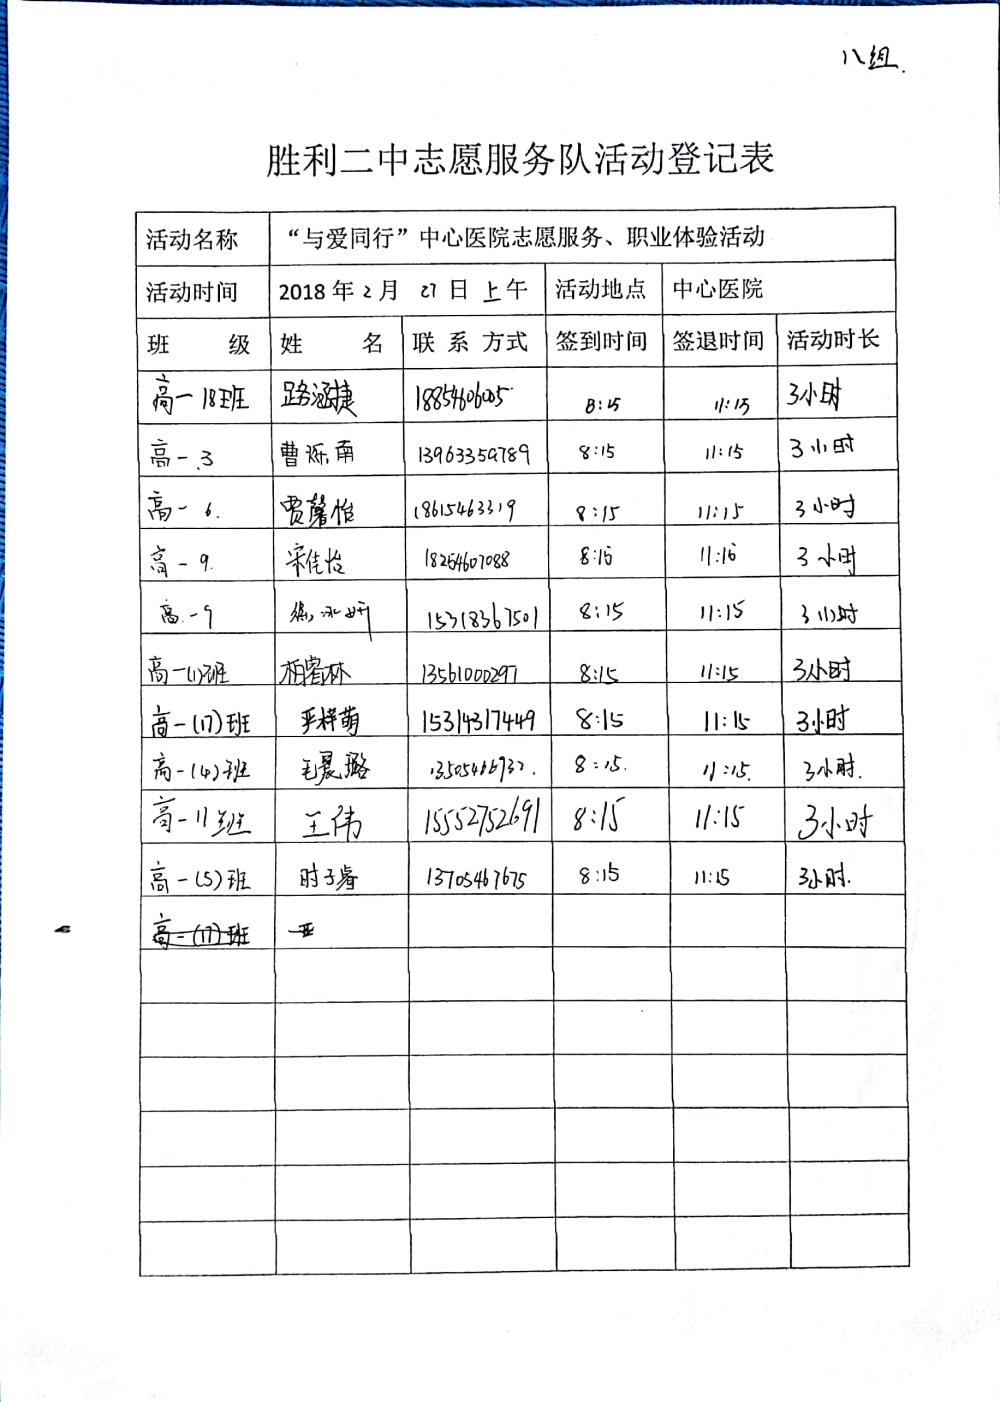 八组.
胜利二中志愿服务队活动登记表
活动名称 “与爱同行”中心医院志愿服务、职业体验活动
活动时间 2018年2月27日上午 活动地点 中心医院
班 级 姓 名 联系方式 签到时间 签退时间 活动时长
高一18班 路涵捷 8:15 11:15 3小时
高一.3 曹烁南 13963359789 8:15 11:15 3小时
高一6. 贾馨怡 18615463319 8:15 11:15 3小时
高一9. 宋佳怡 18254607088 8:15 11:15 3小时
高.一9 15318367501 8:15 11:15 3小时
高一(1)班 13561000297 8:15 11:15 3小时
高一(17)班 严梓萌 15314317449 8:15 11:15 3小时
高一(4)班 毛晨璐 8:15. 11:15. 3小时.
高一11班 王伟 15552752691 8:15 11:15 3小时
高一(5)班 时子睿 13705467675 8:15 11:15 3小时.
高一(17)班